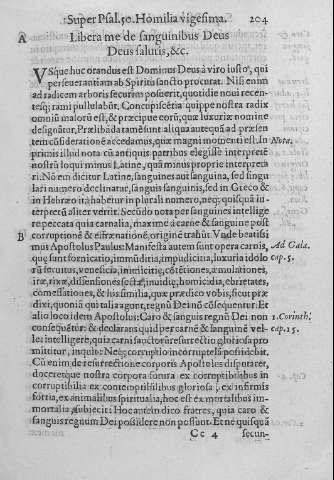 Super Psal. 50. Homilia vigesima. 204
A Libera me de sanguinibus Deus
Deus salutis, &c.
VSque huc orandus est Dominus Deus à viro iusto, qui
perseuerantiam ab Spiritu sancto procurat. Nisi enim
ad radicem arboris securim posuerit, quotidie noui recen-
tesq; rami pullulabūt. Concupiscētia quippe nostra radix
omniū malorū est, & præcipue eorū, quæ luxuriæ nomine
designātur. Prælibāda tamē sunt aliqua aute quā ad præsen
tem cōsiderationē accedamus, quæ magni momenti est. In Nota.
primis illud nota cū antiquis patribus elegisse interpretē
nostrū loqui minus Latine, quā minus proprie interpreta
ri. Nō em dicitur Latine, sanguines aut sanguina, sed singu
lari numero declinatur, sanguis sanguinis, sed in Græco &
in Hebræo ita habetur in plurali numero, neq; quisquā in-
terpretū aliter vertit. Secūdo nota per sanguines intellige
re peccata quæ carnalia, maxime à carne & sanguine post
corruptionē & effrænationē, originē trahūt. Vnde beatissi
B mus Apostolus Paulus: Manifesta autem sunt opera carnis, Ad Gala.
quæ sunt fornicatio, immūditia, impudicitia, luxuria idolo cap. 5.
rū seruitus, veneficia, inimicitiæ, cōtētiones, æmulationes,
iræ, rixæ, dissensiones, sectæ, inuidiæ, homicidia, ebrietates,
comessationes, & his similia, quæ prædico vobis, sicut præ
dixi, quoniā qui talia agunt, regnū Dei nō cōsequentur. Et
alio loco idem Apostolus: Caro & sanguis regnū Dei non 1. Corinth.
consequētur: & declarans quid per carnē & sanguinē vel- cap. 15.
let intelligere, quia carni sanctorū resurrectio gloriosa pro
mittitur, inquit: Neq; corruptio incorruptelā possidebit.
Cū enim de resurrectione corporis Apostolus disputaret,
doceretque nostra corpora futura ex corruptibilibus in
corruptibilia ex contemptibilibus gloriosa, ex infirmis
fortia, ex animalibus spiritualia, hoc est ex mortalibus im-
mortalia, subiecit: Hoc autem dico fratres, quia caro &
sanguis regnum Dei possidere non possunt. Et ne quisquā
Cc 4 secun-